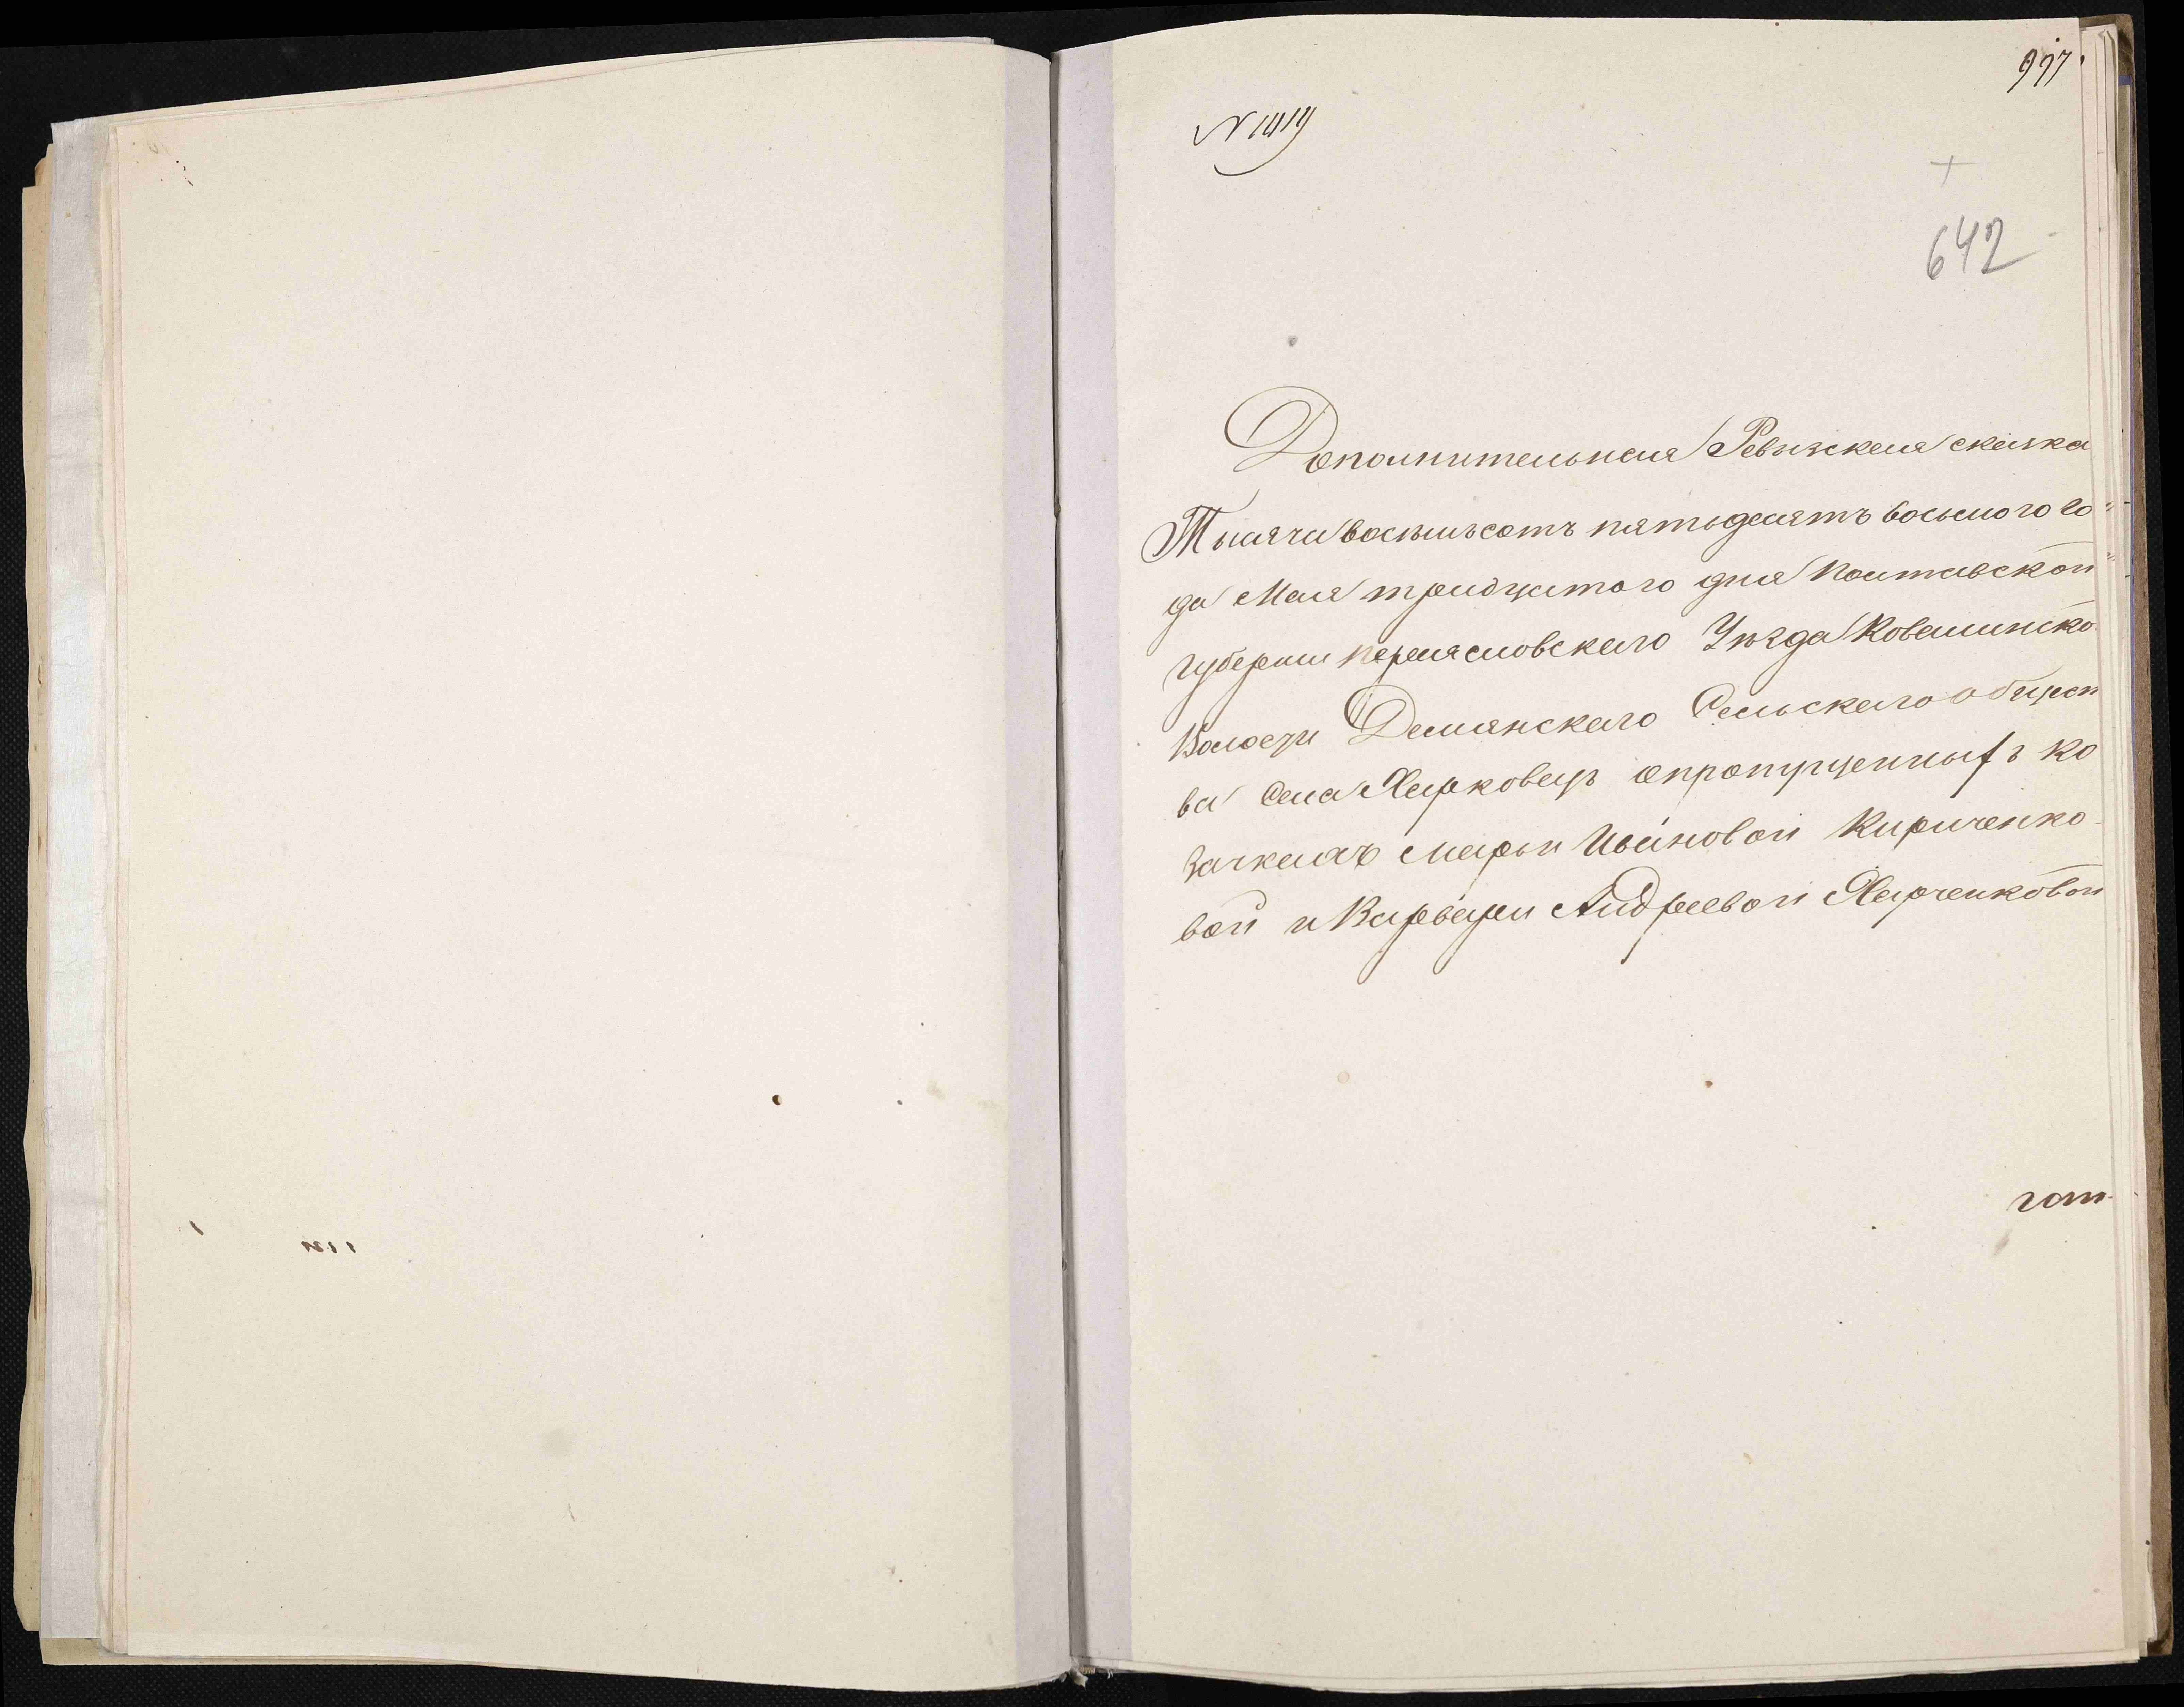 997.
N 1019
+
642
Дополнительная Ревизская сказка
Тысяча восемьсотъ пятьдесятъ восьмого го„
да Мая тридцатого дня Полтавской
губернии Переясловского Уѣзда Ковалинско
Волости Демянского Сельского общест
ва Села Харковецъ опропущенныхъ ко
зачкахъ Марьи Ивановой Кириченко-
вой и Варвари Андреевой Харченковой